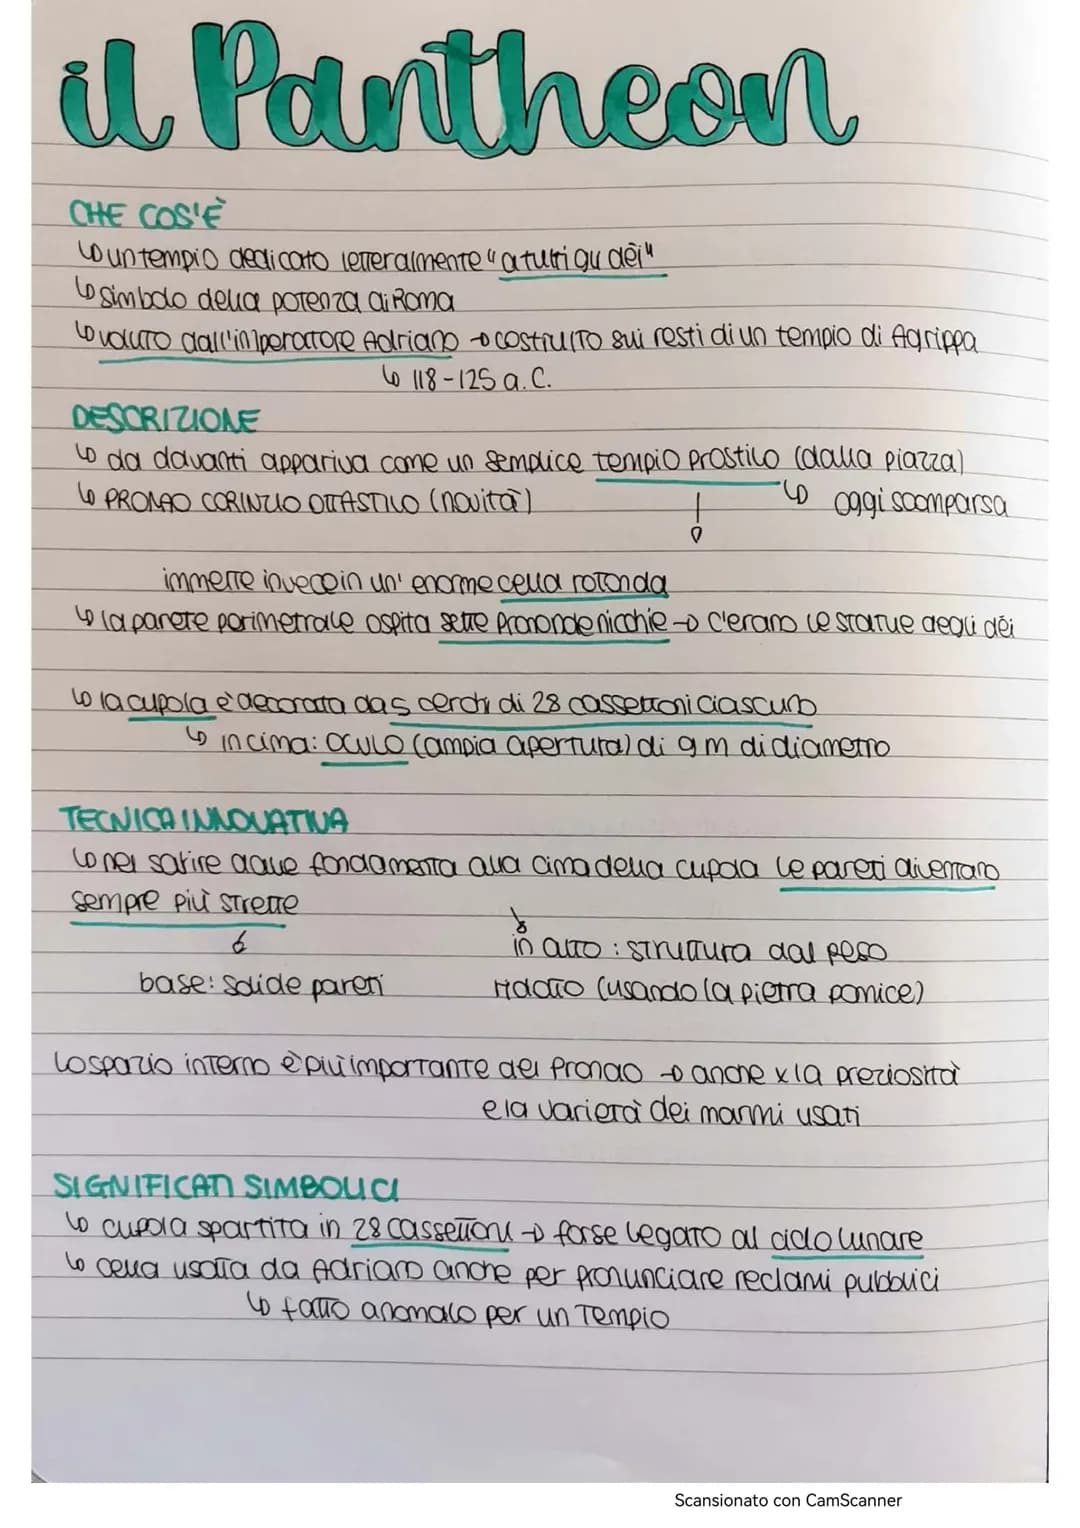 il Pantheon
CHE COS'È
↳ un tempio dedicato letteralmente "a tutti gli dèi"
↳ simbolo della potenza di Roma
↳ voluto dall'imperatore Adriano → costruito sui resti di un tempio di Agrippa
↳ 118-125 a.C.
DESCRIZIONE
↳ da davanti appariva come un semplice tempio prostilo (dalla piazza)
↳ PRONAO CORINZIO OTTASTILO (novità)
↳ oggi scomparsa
immette invece in un' enorme cella rotonda
↳ la parete perimetrale ospita sette profonde nicchie → c'erano le statue degli dèi
↳ la cupola è decorata da 5 cerchi di 28 cassettoni ciascuno
↳ in cima: OCULO (ampia apertura) di 9 m di diametro
TECNICA INNOVATIVA
↳ nel salire dalle fondamenta alla cima della cupola le pareti diventano
sempre più strette
in alto: struttura dal peso
base: solide pareti
ridotto (usando la pietra pomice)
Lo spazio interno è più importante del pronao → anche x la preziosità
e la varietà dei marmi usati
SIGNIFICATI SIMBOLICI
↳ cupola spartita in 28 cassettoni → forse legato al ciclo lunare
↳ cella usata da Adriano anche per pronunciare reclami pubblici
↳ fatto anomalo per un tempio
Scansionato con CamScanner